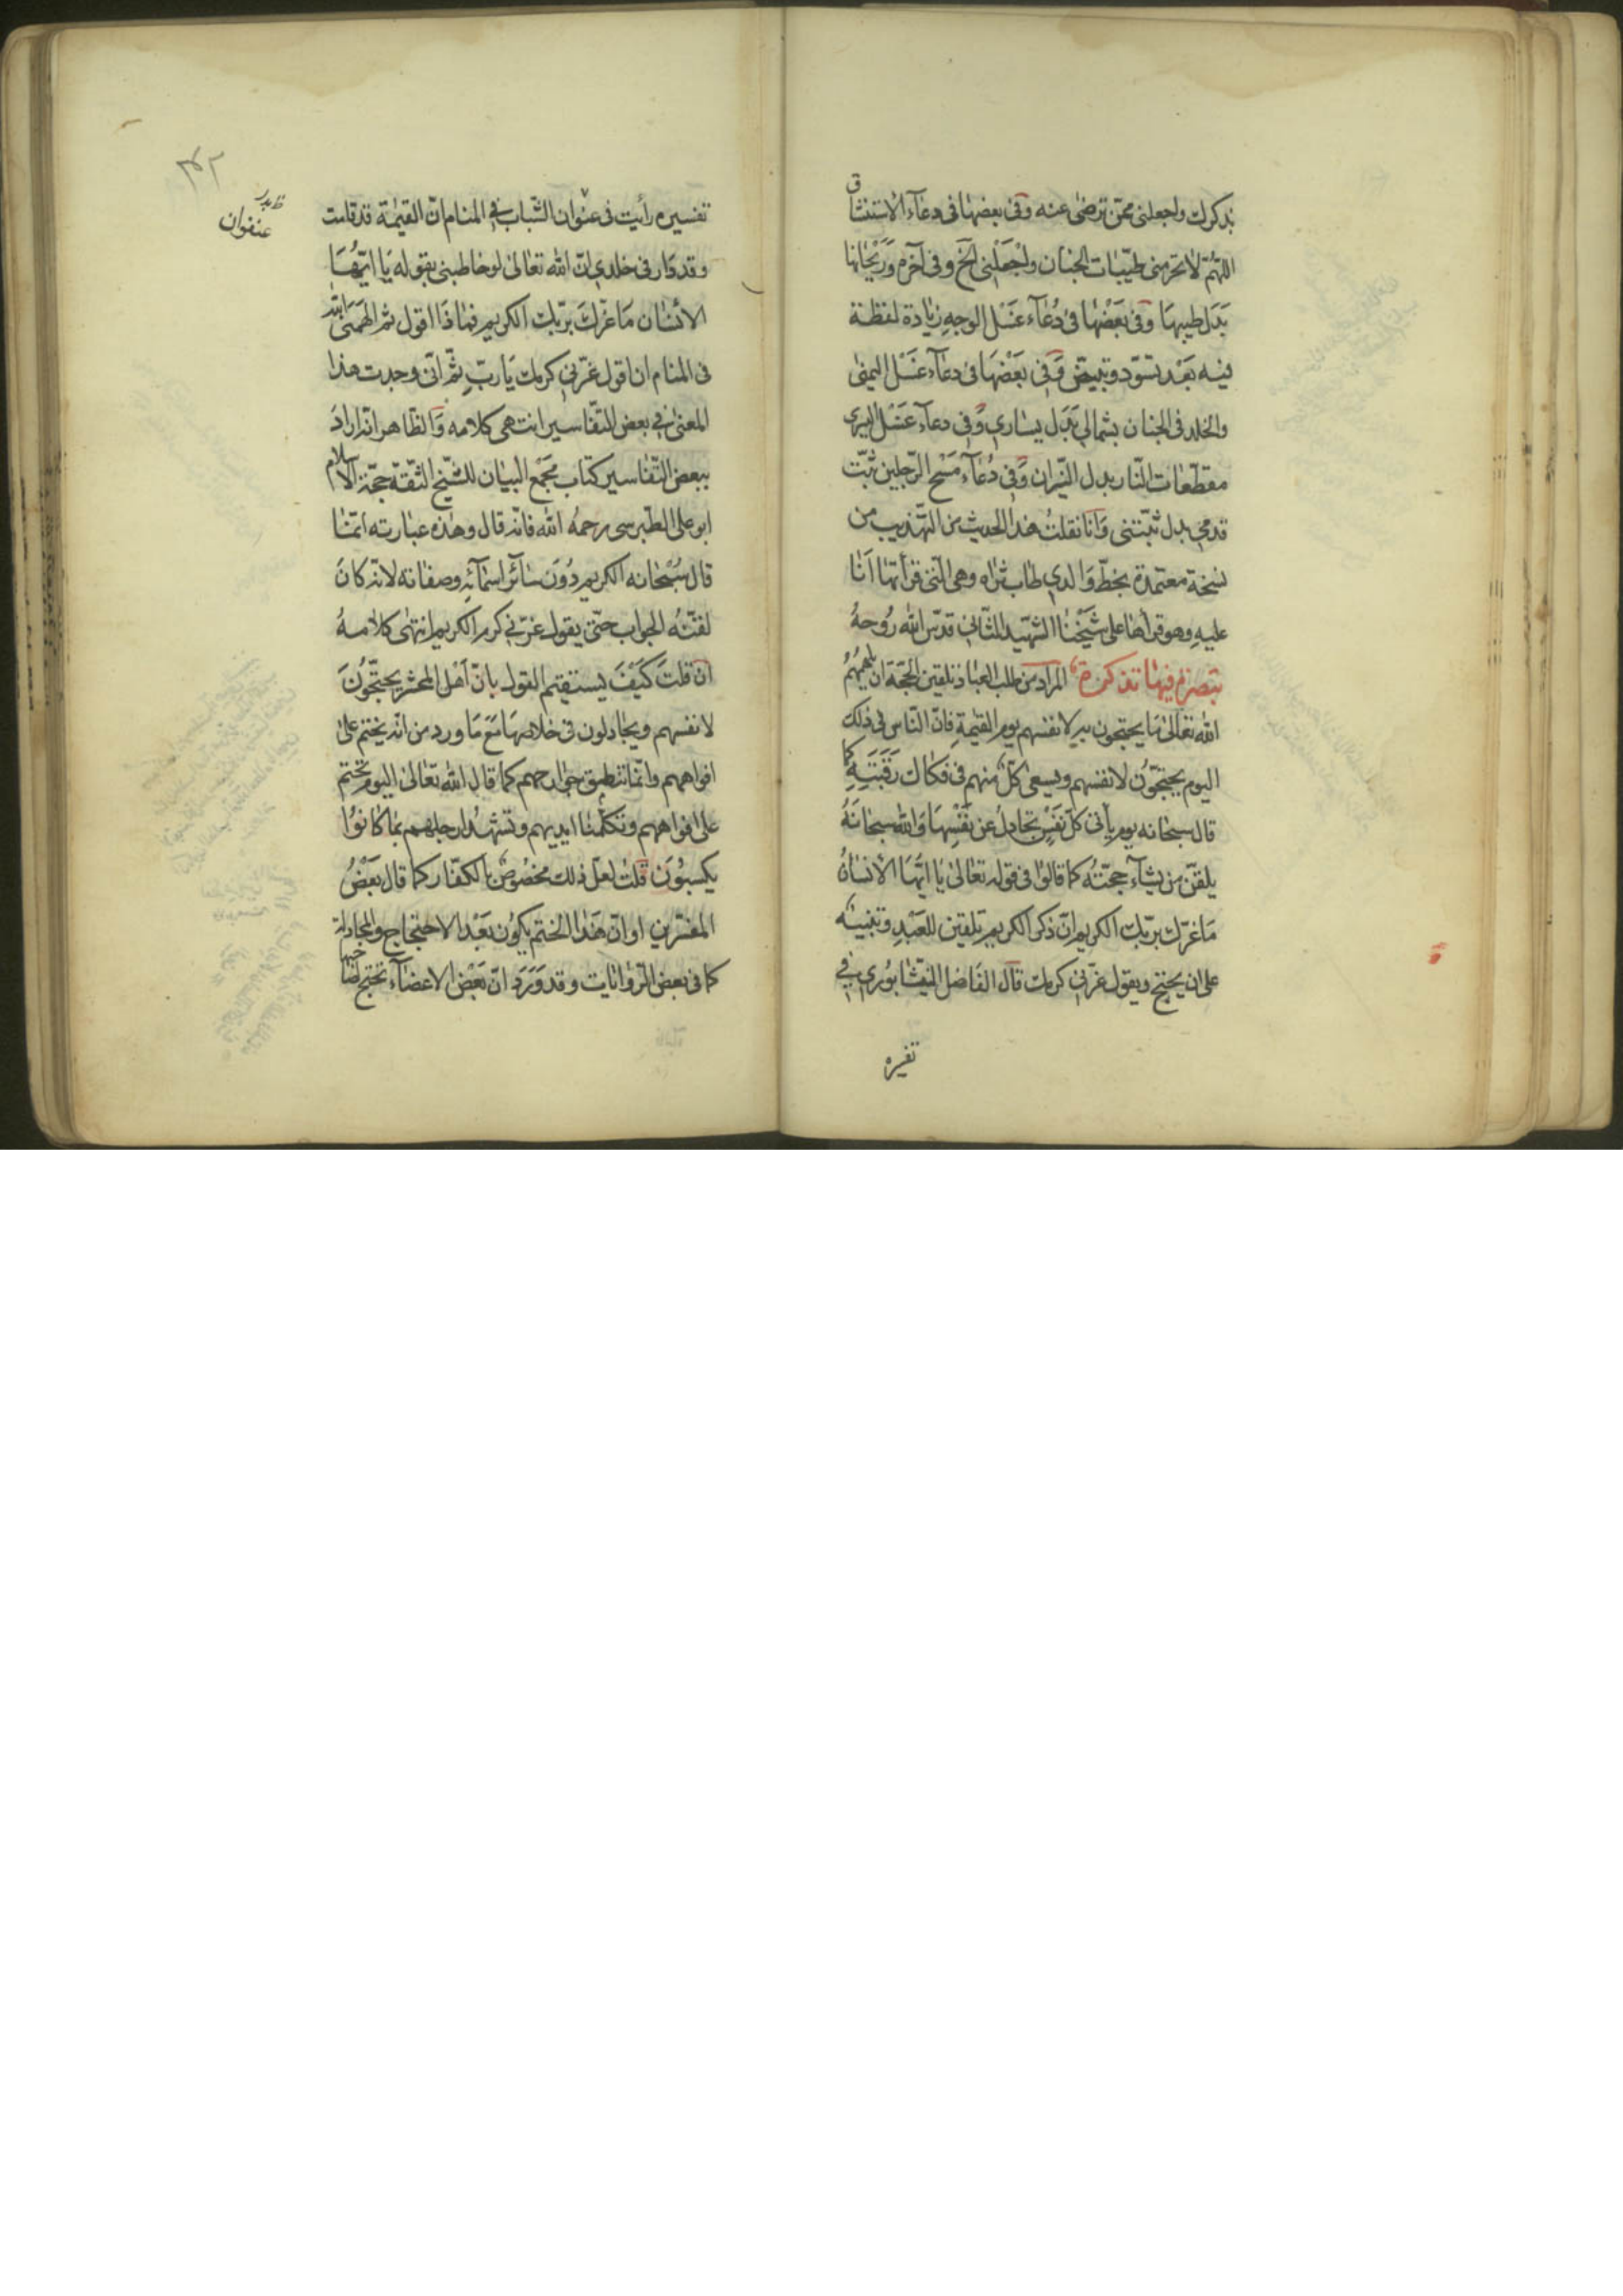 بذكرك واجعلنى ممّن ترضى عنه وفى بعضها فى دعآء الاستنشاق
اللهُمّ لا تحرمنى طيّبات الجنان واجْعَلْنى الَخ وفى آخره وَرَيْحانها
بَدَل طيبها وفى بَعْضها فى دُعآء غَسْل الوجهِ زيادة لفظة
فيه بَعْد تسوّد وتبيضّ وَفى بَعْضهَا فى دعآء غَسْل اليمنى
والخلد فى الجنان بشمالي بَدَل يساري وَفى دعآء غَسْل اليسرى
مقطّعات النّار بدل النّيران وَفى دُعآء مَسْح الرّجلين ثبّت
قدمي بدل ثبّتنى وَانا نقلتُ هذا الحديث من التّهذيب من
نسخة معتمدة بخطّ وَالدي طاب ثراه وهى الّتى قرأتها اَنَا
عليهِ وهو قرأها على شَيْخنا الشّهيد الثّاني قدّس الله رُوحهُ
تبصرة فيها تذكرة المراد من طلب العباد تلقين الحجّة ان يلهمهُمُ
الله تعالى ما يحتجّون به لانفسهم يوم القيمةِ فانّ النّاس فى ذلك
اليوم يحتجّوُن لانفسهم ويسعى كلّ منهم فى فكاك رَقَبَتِهِ كما
قال سبحانه يوم يأتى كلّ نَفْسٍ تجادلُ عن نَفْسِهَا وَالله سبحانَهُ
يلقّن من يشآء حجّتهُ كما قالوُا فى قوله تعَالىٰ يا ايّهَا الاْنسانُ
مَا غرّك بربّك الكريم انّ ذكر الكريم تلقين للعَبْدِ وتنبيه
على ان يحتجّ ويقول غرّنى كرمك قال الفَاضل النّيشابوُري فى
تفسيره
٤٢
ظ بدر
عنفوان
تفسيره رأيت فى عنوان الشّباب فى المنام انّ القيمة قد قامت
وقد دَار فى خلدي انّ الله تعالى لو خاطبنى بقوله يَا ايّهُا
الاْنسَان مَا غرّكَ بربّك الكريم فماذَا اقول ثم الهَمَنى الله
فى المنام ان اقول غرّني كرمك يَا ربّ ثمّ انّى وجدت هذا
المعنى فى بعض التّفاسير انتهى كلامه وَالظّاهر انّه ارادَ
ببعض التّفاسير كتاب مجْمَع البيَان للشّيخ الثّقة حجّة الاسلام
ابو على الطّبرسى رحمهُ الله فانّه قال وهٰذه عبارته انّما
قال سُبْحانه الكريم دُوُنَ سَائر اسْمآئهِ وصفاته لانّه كانَ
لقنّهُ الجواب حتّى يقول غرّني كرم الكريم انتهى كلامهُ
ان قلتَ كَيْفَ يستقيم القول بانّ اَهْل المحشر يحتجّوُنَ
لانفسهم ويجادلون فى خلاصهَا مَعَ مَا ورد من انّه يختم على
افواههم وانّما تنطق جوارحهم كما قال الله تعَالىٰ اليوم نختم
على افواههم وتكلّمنا ايديهم وتشهَدُ ارجلهم بمَا كانوُا
يكسبوُنَ قلت لعلّ ذلك مخصُوص بالكفّار كما قال بَعْضُ
المفسّرين او انّ هَذا الختم يكوُن بَعْد الاحتجاج والمجادلة
كما فى بعض الرّوايات وقد وَرَدَ انّ بَعْض الاعضآء تحتجّ لصاحبها